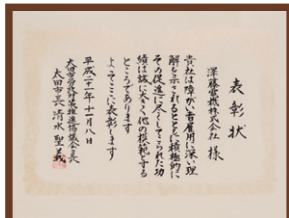 表彰状
澤藤電機株式会社 様
貴社は障がい者雇用に深い理
解を示されるとともに積極的に
その促進に尽くしてこられた功
績は誠に大きく他の模範とする
ところであります
よってここに表彰します
平成二十一年十一月八日
太田市長 清水聖義